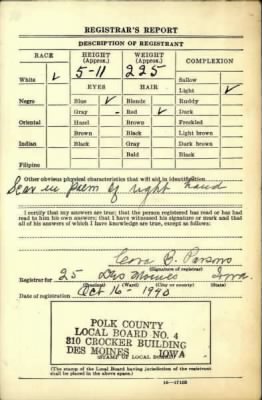 REGISTRAR'S REPORT
DESCRIPTION OF REGISTRANT
RACE HEIGHT (Approx.) WEIGHT (Approx.) COMPLEXION
5-11 225
White ✓ Sallow
EYES HAIR Light ✓
Negro Blue ✓ Blonde Ruddy
Gray Red ✓ Dark
Oriental Hazel Brown Freckled
Brown Black Light brown
Indian Black Gray Dark brown
Bald Black
Filipino
Other obvious physical characteristics that will aid in identification
Scar in palm of right hand
I certify that my answers are true; that the person registered has read or has had
read to him his own answers; that I have witnessed his signature or mark and that
all of his answers of which I have knowledge are true, except as follows:
Cora B. Parsons
(Signature of registrar)
Registrar for 25 Des Moines Iowa
(Precinct) (Ward) (City or county) (State)
Date of registration Oct 16 - 1940
POLK COUNTY
LOCAL BOARD NO. 4
310 CROCKER BUILDING
DES MOINES IOWA
(STAMP OF LOCAL BOARD)
(The stamp of the Local Board having jurisdiction of the registrant
shall be placed in the above space.)
16—17105